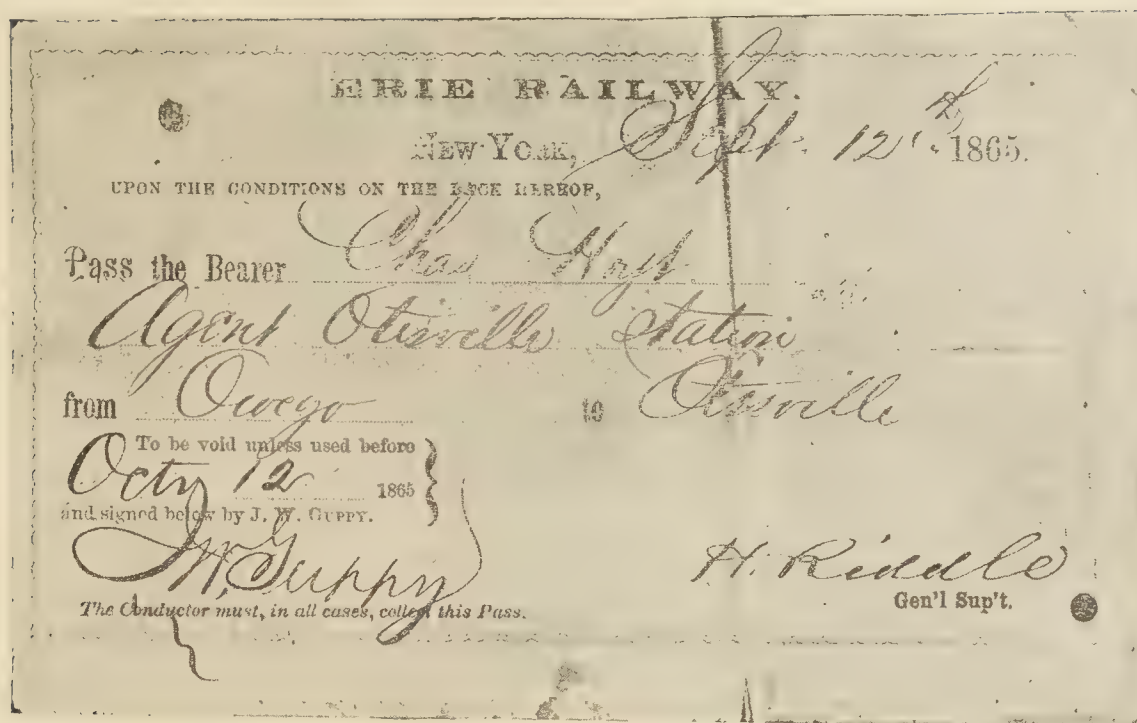 ERIE RAILWAY.
NEW YORK, Sept. 12th 1865.
UPON THE CONDITIONS ON THE BACK HEREOF,
Pass the Bearer Chas Hoyt
Agent Otisville Station
from Owego to Otisville
To be void unless used before
Octr 12 1865
and signed below by J. W. GUPPY.
J W Guppy
H. Riddle
The Conductor must, in all cases, collect this Pass.
Gen'l Sup't.